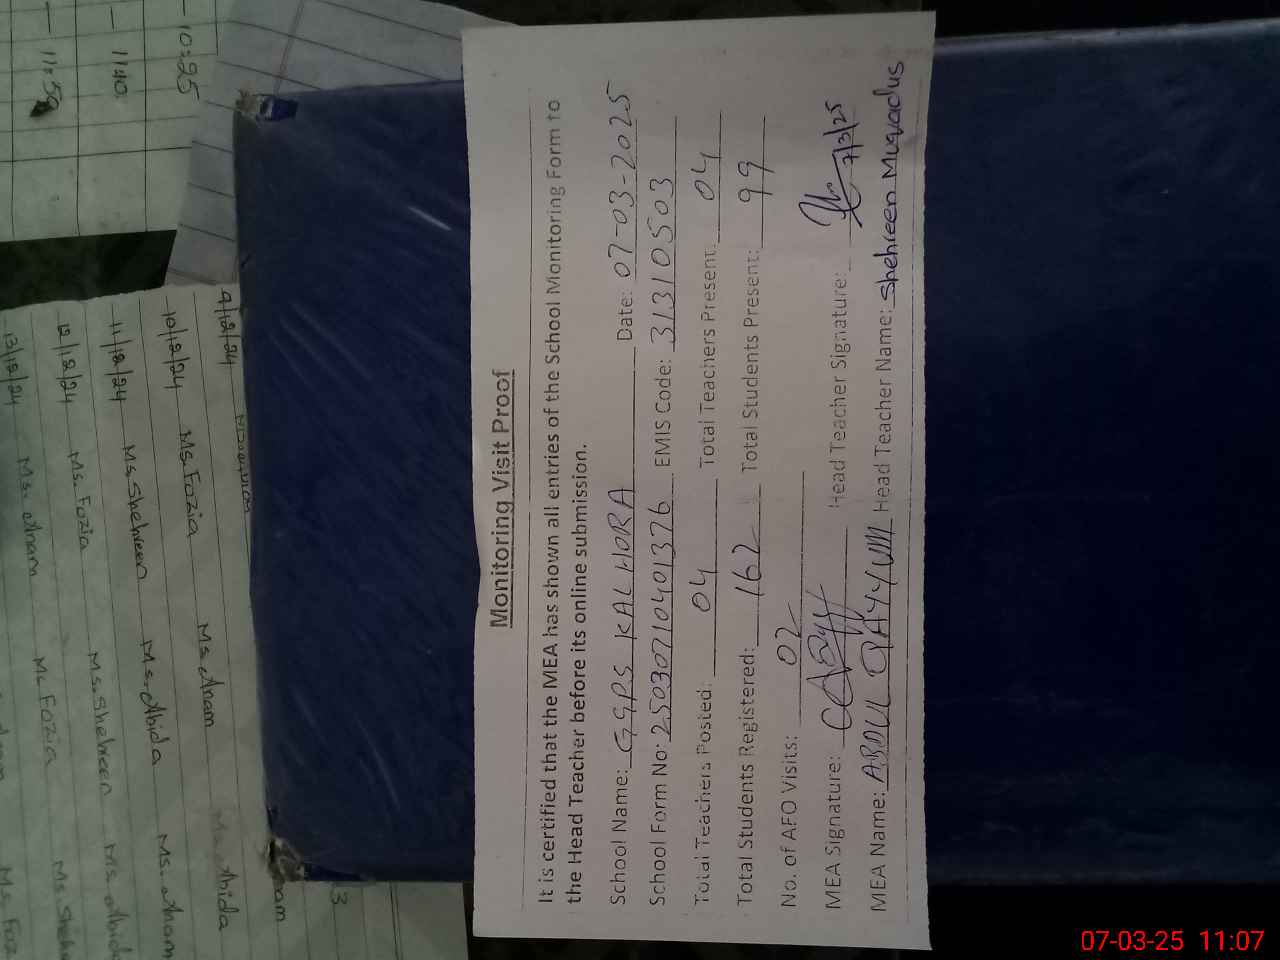 Monitoring Visit Proof
It is certified that the MEA has shown all entries of the School Monitoring Form to
the Head Teacher before its online submission.
School Name: GGPS KALHORA Date: 07-03-2025
School Form No: 25030710401376 EMIS Code: 31310503
Total Teachers Posted: 04 Total Teachers Present: 04
Total Students Registered: 162 Total Students Present: 99
No. of AFO Visits: 02
MEA Signature: Head Teacher Signature: 7/3/25
MEA Name: ABDUL QAYYUM Head Teacher Name: Shehreen Muqadus
10:25
11:40
11:50
9/12/24 Ms. Fozia Ms. Anam Ms. Abida
10/12/24 Ms. Shehreen Ms. Abida Ms. Anam
11/12/24 Ms. Fozia Ms. Shehreen Ms. Abida
12/12/24 Ms. Anam Ms. Fozia
13/12/24
07-03-25 11:07